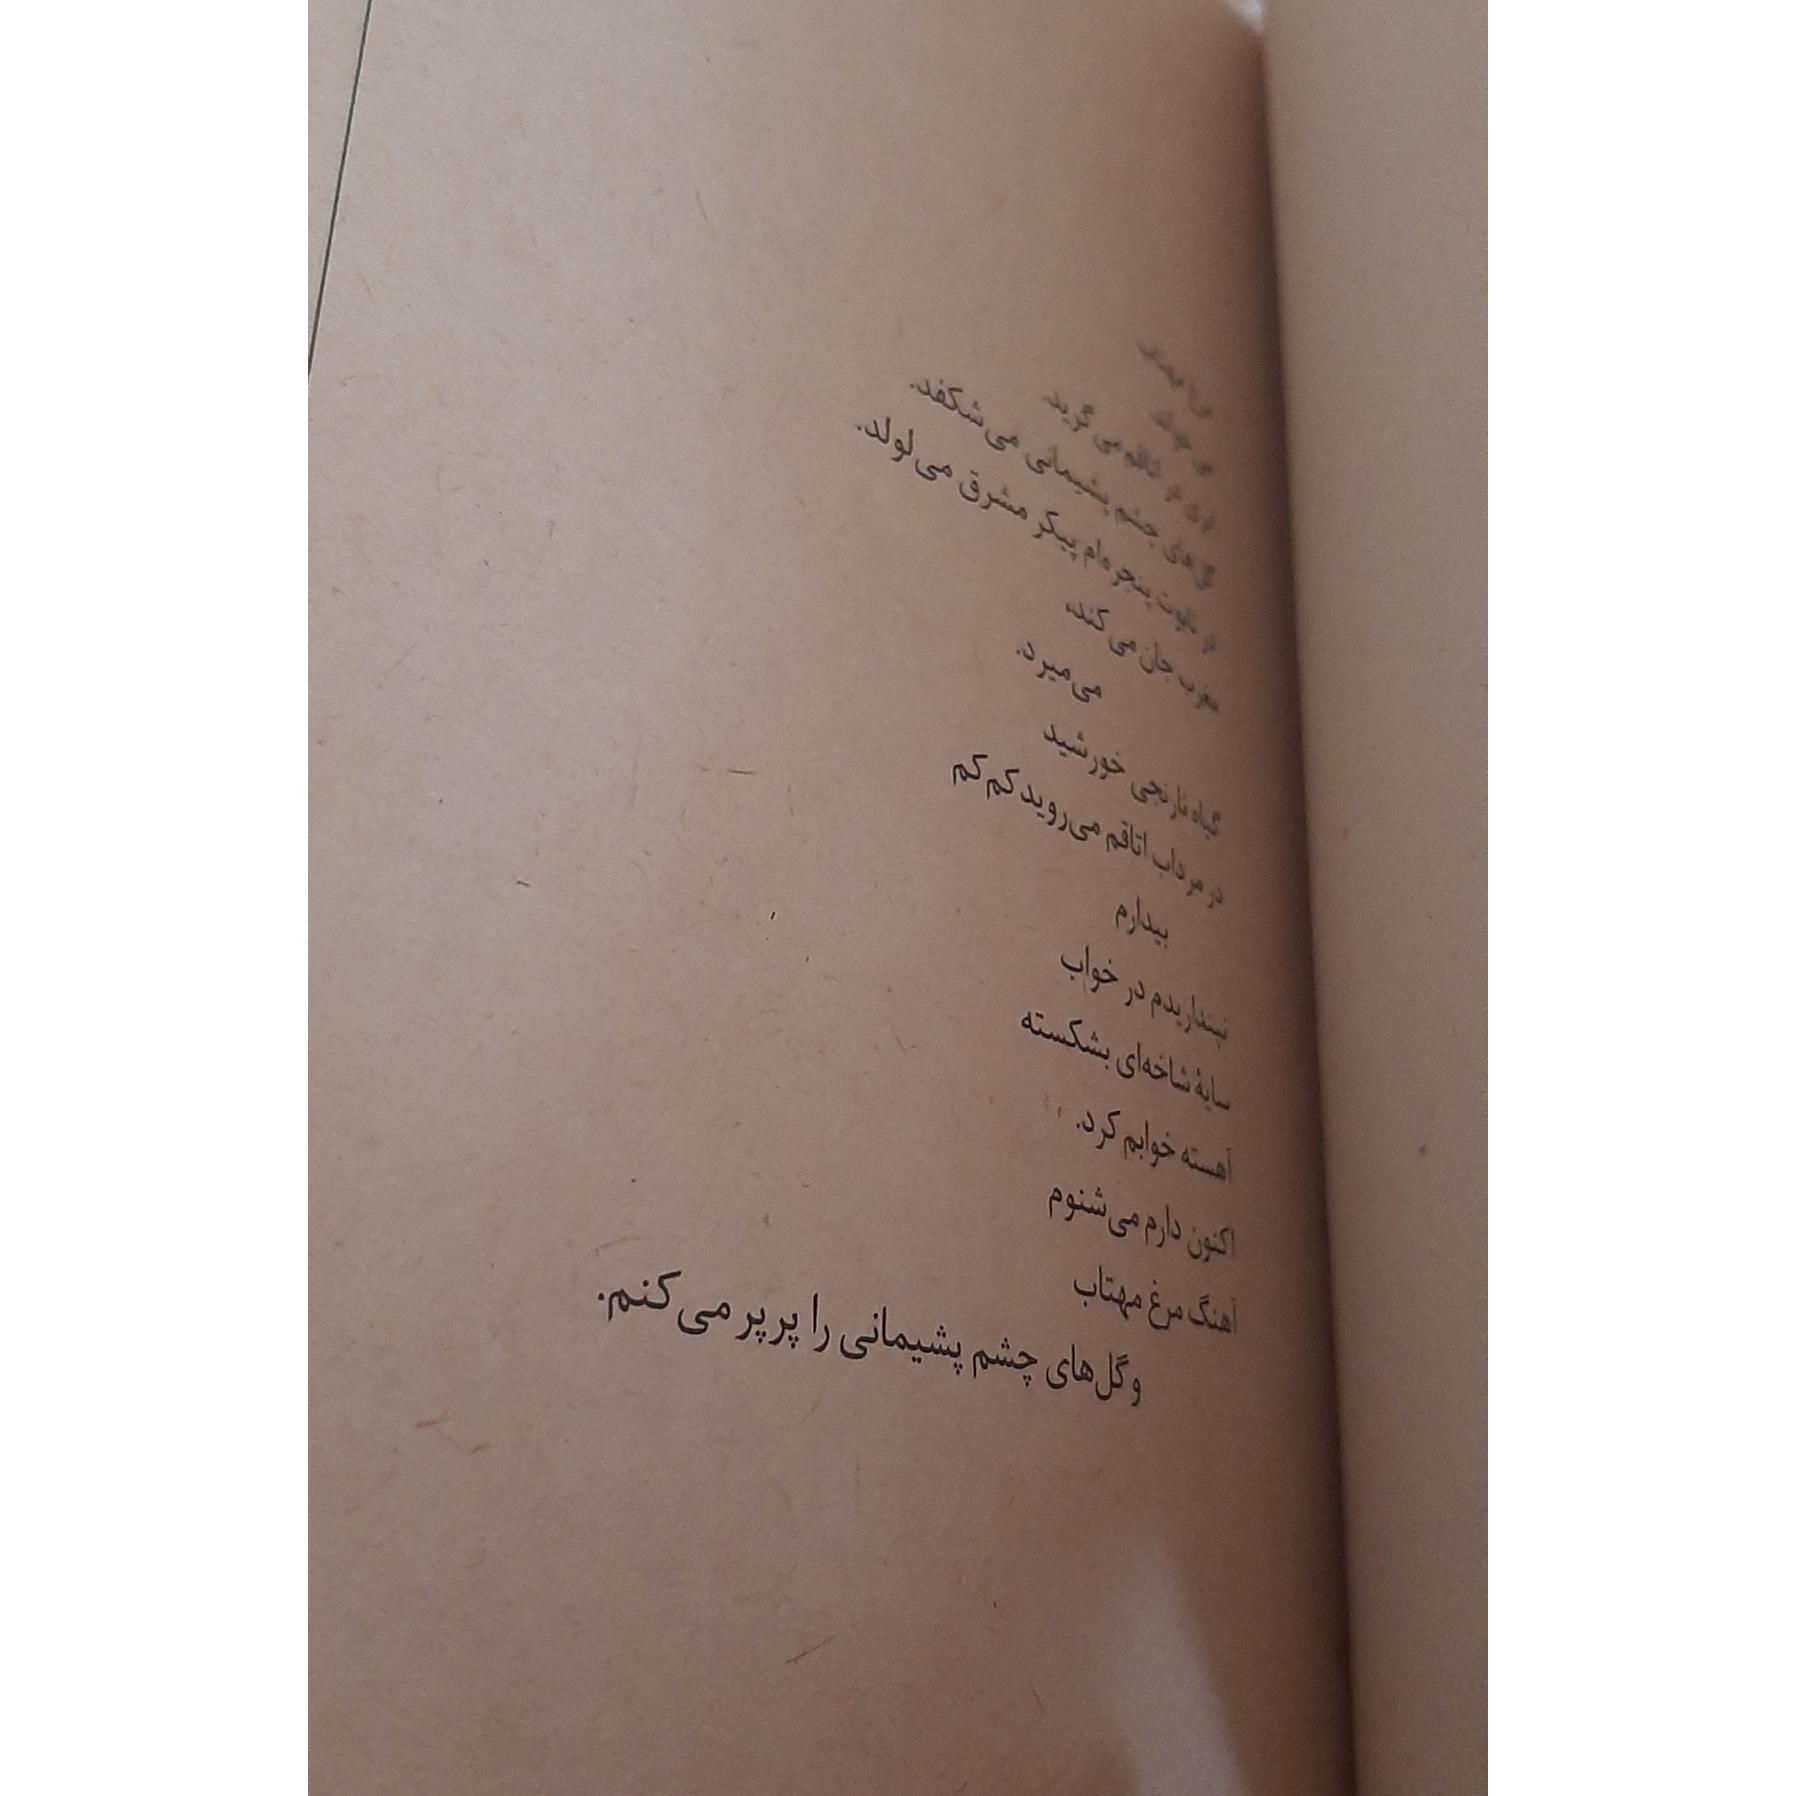 اتاقم می‌گرید.
گل‌های چشم پشیمانی می‌شکفد.
در تابوت پنجره‌ام پیکر مشرق می‌لولد.
مغرب جان می‌کند،
می‌میرد.
گیاه نارنجی خورشید
در مرداب اتاقم می‌روید کم‌کم
بیدارم
نپنداریدم در خواب
سایهٔ شاخه‌ای بشکسته
آهسته خوابم کرد.
اکنون دارم می‌شنوم
آهنگ مرغ مهتاب
و گل‌های چشم پشیمانی را پرپر می‌کنم.